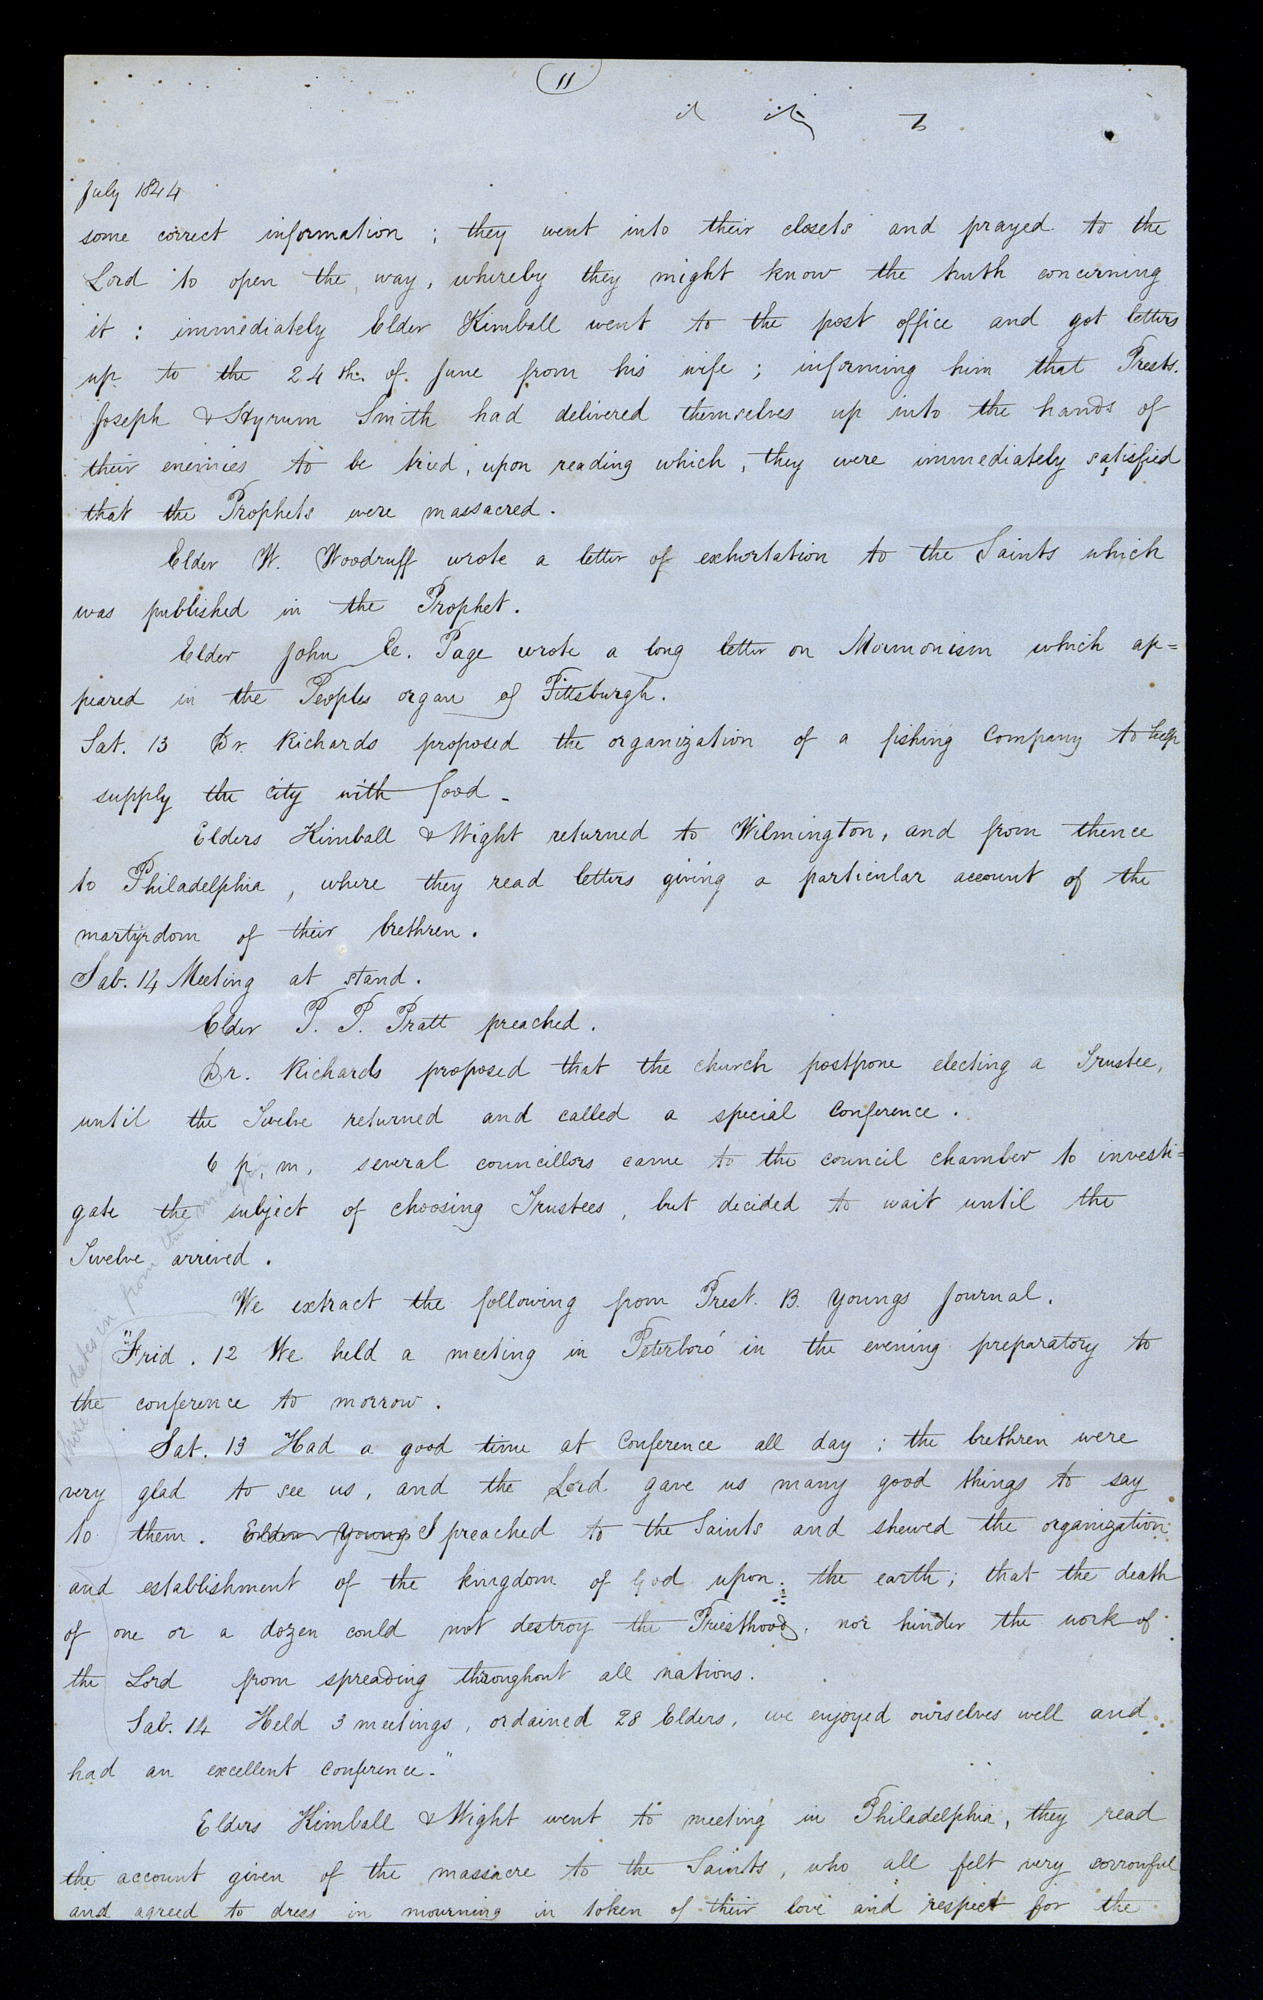 11
July 1844
some correct information ; they went into their closets and prayed to the
Lord to open the way, whereby they might know the truth concerning
it : immediately Elder Kimball went to the post office and got letters
up to the 24th. of June from his wife ; informing him that Prests.
Joseph & Hyrum Smith had delivered themselves up into the hands of
their enemies to be tried, upon reading which, they were immediately satisfied
that the Prophets were massacred.
Elder W. Woodruff wrote a letter of exhortation to the Saints which
was published in the Prophet.
Elder John E. Page wrote a long letter on Mormonism which ap=
peared in the Peoples organ of Pittsburgh.
Sat. 13 Dr. Richards proposed the organization of a fishing Company to help
supply the city with food -
Elders Kimball & Wight returned to Wilmington, and from thence
to Philadelphia, where they read letters giving a particular account of the
martyrdom of their brethren.
Sab. 14 Meeting at stand.
Elder P. P. Pratt preached.
Dr. Richards proposed that the church postpone electing a Trustee,
until the Twelve returned and called a special Conference.
6 p, m, several councillors came to the council chamber to investi=
gate the subject of choosing Trustees, but decided to wait until the
Twelve arrived.
We extract the following from Prest. B. Youngs Journal.
"Frid. 12 We held a meeting in Peterboro' in the evening preparatory to
the conference to morrow.
Sat. 13 Had a good time at Conference all day ; the brethren were
very glad to see us, and the Lord gave us many good things to say
to them. Elder Young I preached to the Saints and shewed the organization
and establishment of the kingdom of God upon the earth; that the death
of one or a dozen could not destroy the Priesthood, nor hinder the work of
the Lord from spreading throughout all nations.
Sab. 14 Held 3 meetings, ordained 28 Elders, we enjoyed ourselves well and
had an excellent Conference."
Elders Kimball & Wight went to meeting in Philadelphia, they read
the account given of the massacre to the Saints, who all felt very sorrowful
and agreed to dress in mourning in token of their love and respect for the
dates in from the margin